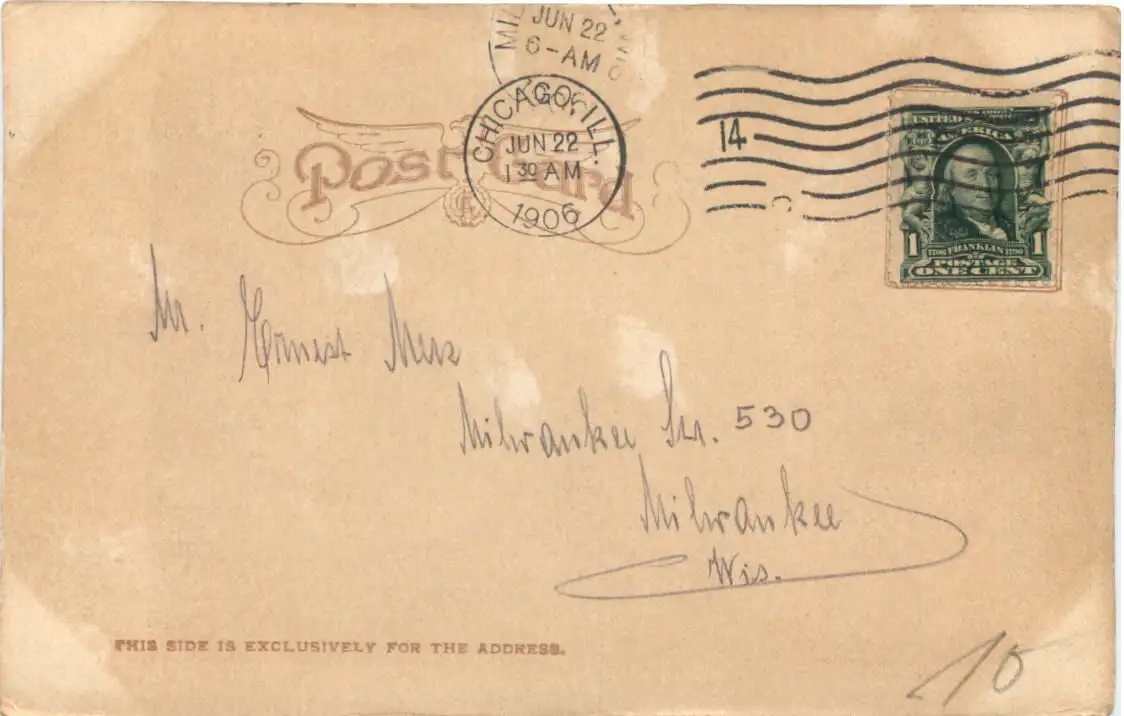 MIL WIS
JUN 22
6-AM
CHICAGO, ILL.
JUN 22
1 30 AM
1906
14
Post Card
UNITED STATES OF AMERICA
1706 FRANKLIN 1790
1 1
POSTAGE
ONE CENT
Mr. Ernest Merz
Milwaukee Str. 530
Milwaukee
Wis.
THIS SIDE IS EXCLUSIVELY FOR THE ADDRESS.
10